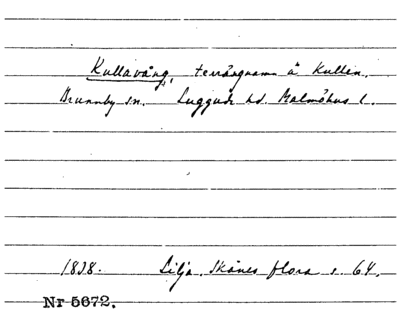 Kullavång, terrängnamn å Kullen.
Brunnby sn. Luggude hd. Malmöhus l.
1838. Lilja, Skånes flora s. 64.
Nr 5672.